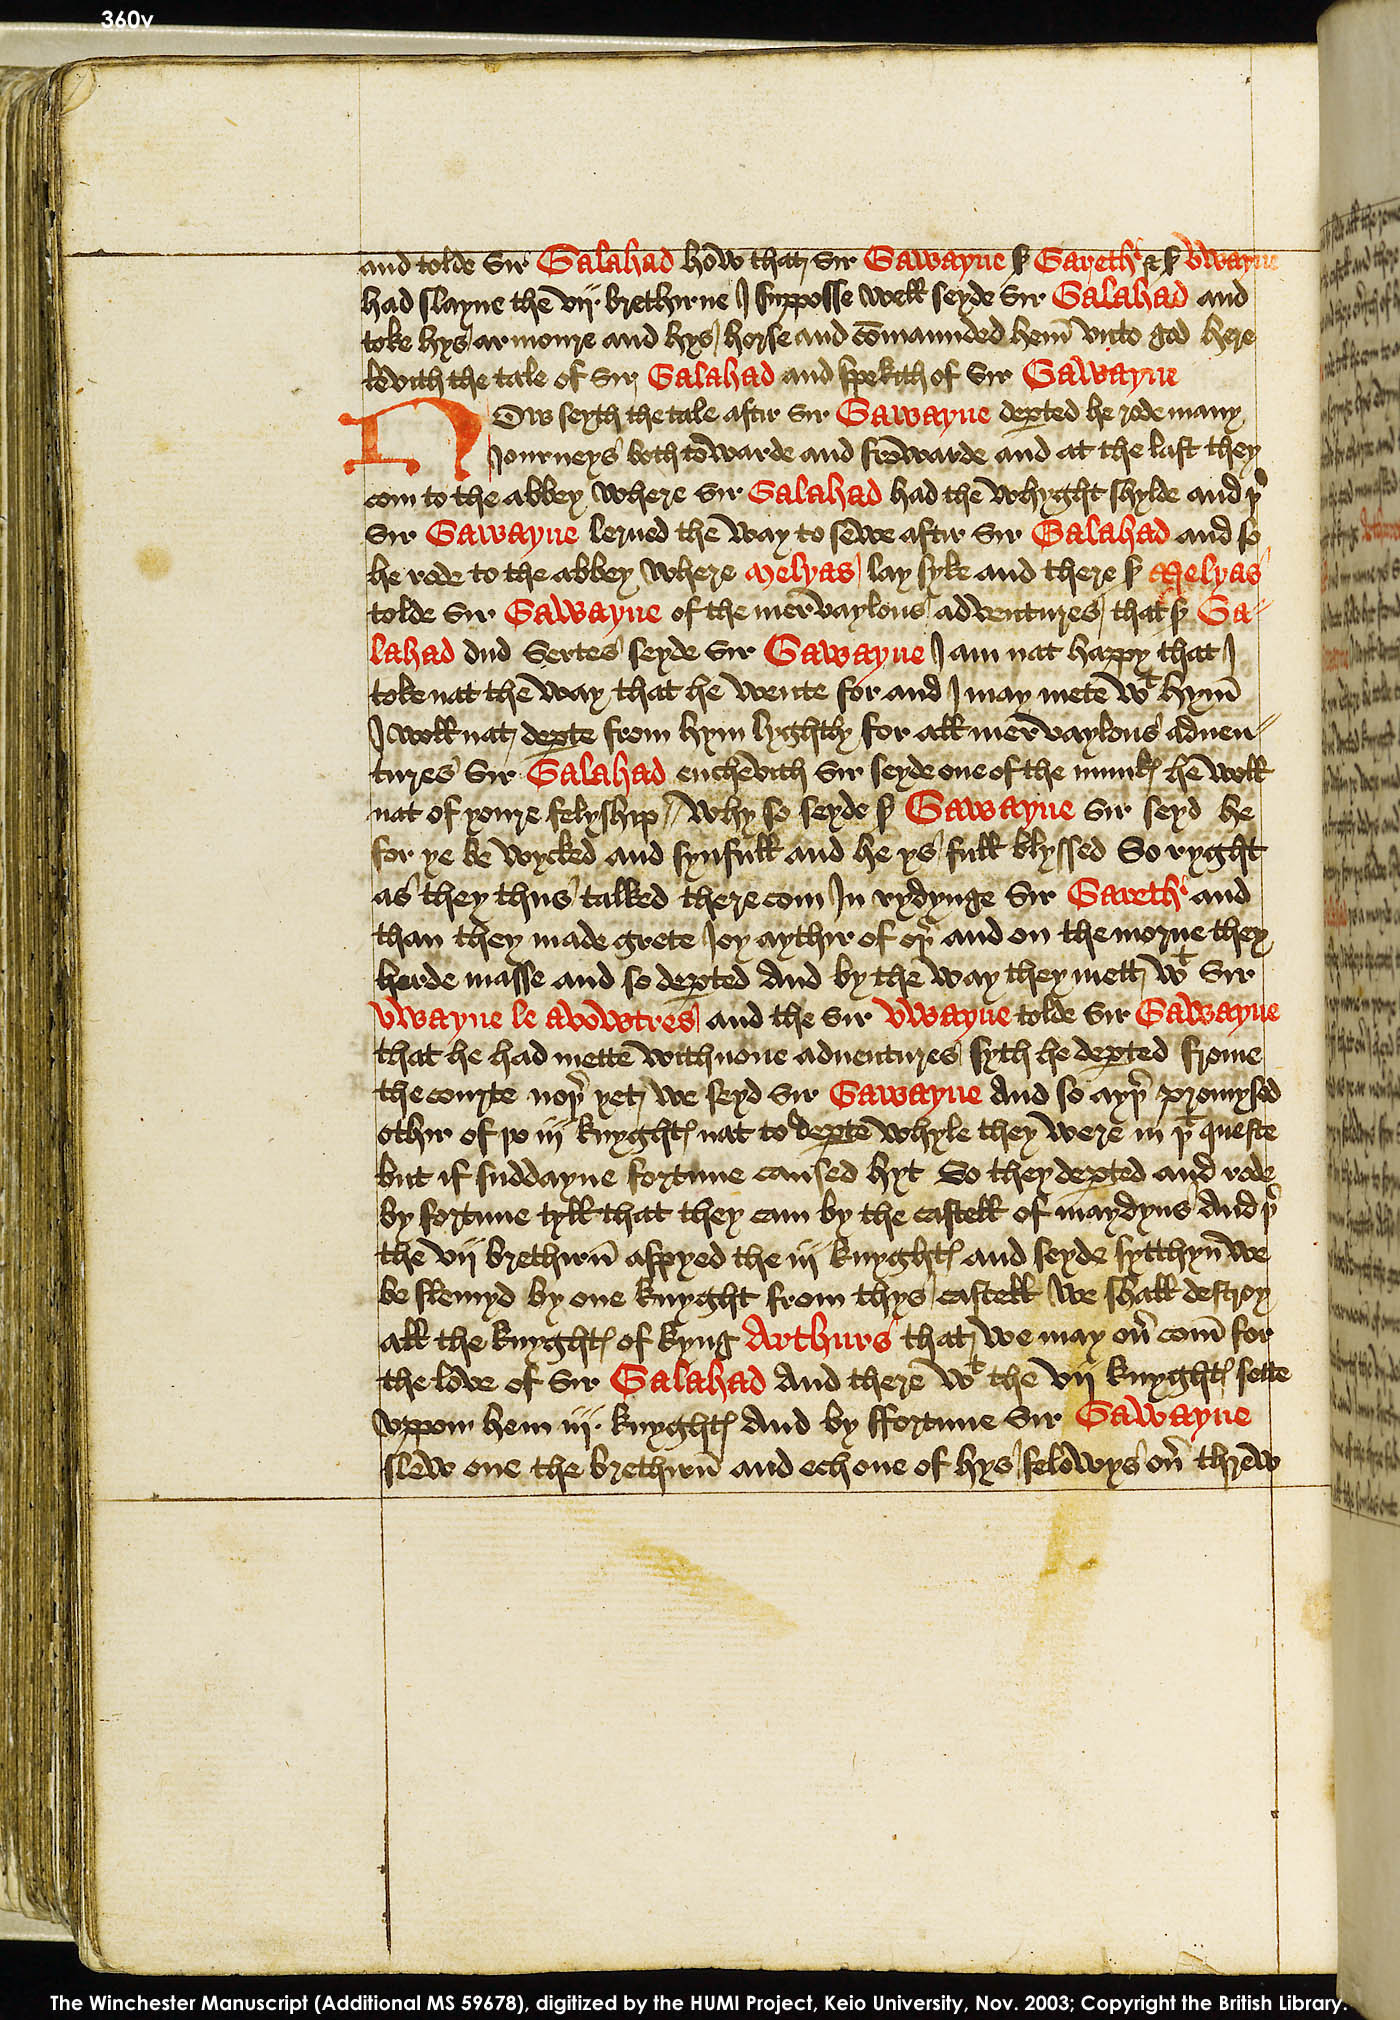 360v
and tolde Sir Galahad how that Sir Gawayne S Gareth & S Vwayne
had slayne the vij brethirne I supposse well seyde Sir Galahad and
toke hys armoure and hys horse and cōmaunded hem̄ vnto god here
levith the tale of Sir Galahad and spekith of Sir Gawayne
Now seyth the tale aftir Sir Gawayne depted he rode many
Journeys both towarde and frowarde and at the last they
com to the abbey where Sir Galahad had the whyght shylde and þ͛
Sir Gawayne lerned the way to sewe aftir Sir Galahad and so
he rode to the abbey where Melyas lay syke and there S Melyas
tolde Sir Gawayne of the mervaylous adventures that S Ga-
lahad dud Sertes seyde Sir Gawayne I am nat happy that I
toke nat the way that he wente for and I may mete wt hym̄
I woll nat depte from hym lyghtly for all mervaylous aduen-
tures Sir Galahad enchevith Sir seyde one of the munkꝭ he woll
nat of youre felyship // Why so seyde S Gawayne Sir seyd he
for ye be wycked and synfull and he ys full blyssed So ryght
as they thus talked there com In rydynge Sir Gareth and
than they made grete Joy aythir of oþ͛ and on the morne they
herde masse and so depted And by the way they mett wt Sir
Vwayne le avowtres and the Sir Vwayne tolde Sir Gawayne
that he had mette with none aduentures syth he depted frome
the courte noþ͛ yet we seyd Sir Gawayne And so ayþ͛ promysed
othir of þo iij knyghtꝭ nat to depte whyle they were in þt queste
but if suddayne fortune caused hyt So they depted and rode
by fortune tyll that they cam by the castell of maydyns And þ͛
the vij brethirn̄ aspyed the iij knyghtꝭ and seyde sytthyn̄ we
be flemyd by one knyght from thys castell we shall destroy
all the knyghtꝭ of kyng Arthurs that we may ou͛ com̄ for
the love of Sir Galahad And there wt the vij knyghtꝭ sette
vppon hem iij knyghtꝭ And by ffortune Sir Gawayne
slew one the brethirn̄ and ech one of hys felowys ou͛ threw
The Winchester Manuscript (Additional MS 59678), digitized by the HUMI Project, Keio University, Nov. 2003; Copyright the British Library.